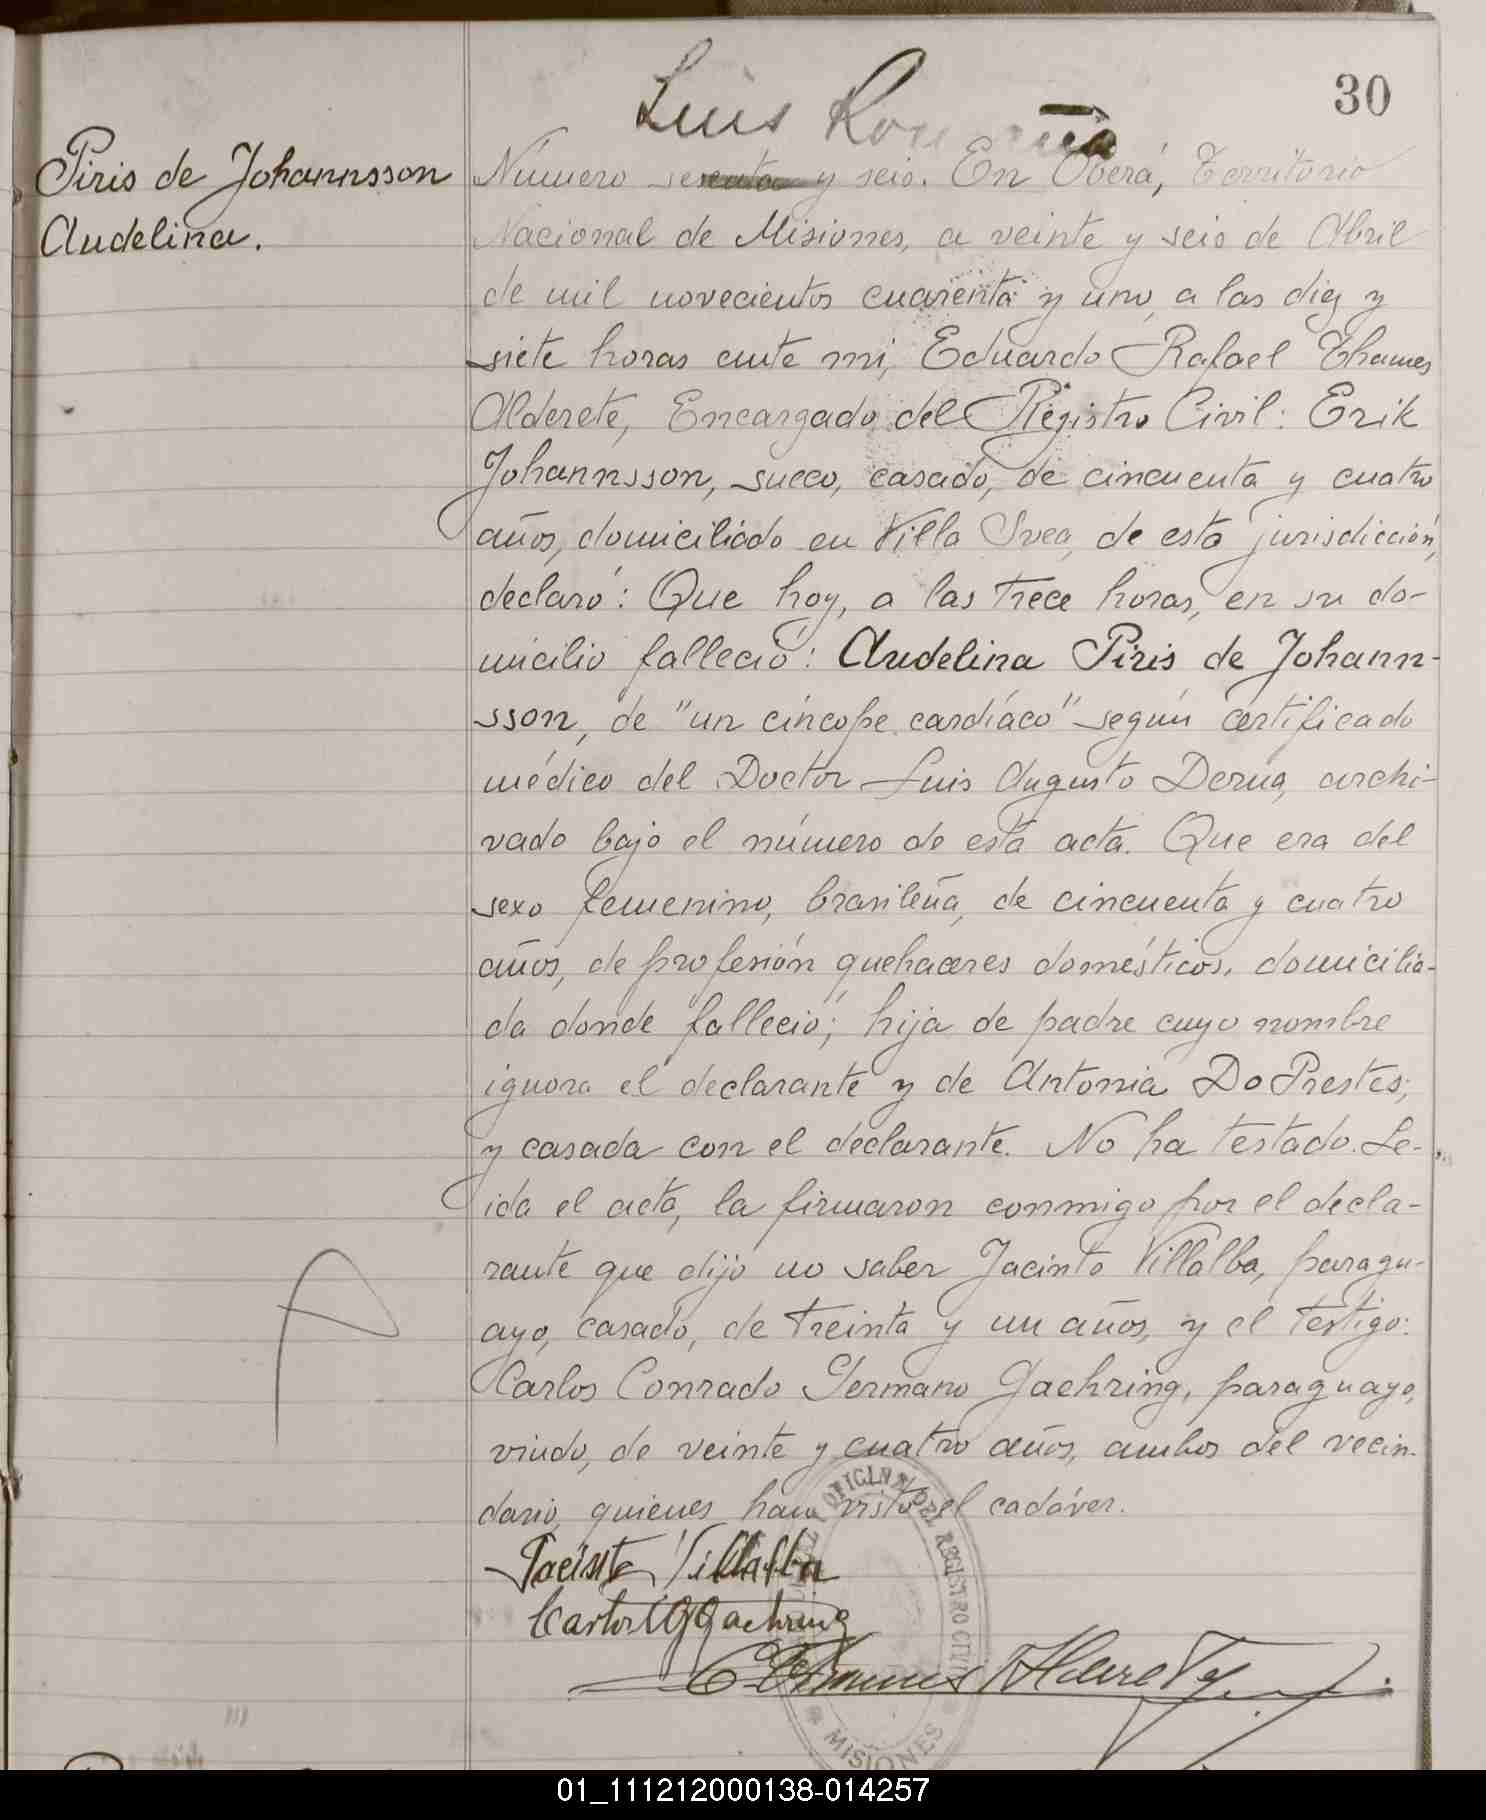 30
Luis
Piris de Johannsson
Audelina.
Número sesenta y seis. En Oberá, Territorio
Nacional de Misiones, a veinte y seis de Abril
de mil novecientos cuarenta y uno, a las diez y
siete horas ante mi, Eduardo Rafael Thames
Alderete, Encargado del Registro Civil: Erik
Johannsson, sueco, casado, de cincuenta y cuatro
años, domiciliado en Villa Svea, de esta jurisdicción,
declaró: Que hoy, a las trece horas, en su do-
micilio falleció: Audelina Piris de Johann-
sson, de "un cíncope cardíaco" según certificado
médico del Doctor Luis Augusto Derna, archi-
vado bajo el número de esta acta. Que era del
sexo femenino, brasileña, de cincuenta y cuatro
años, de profesión quehaceres domésticos, domicilia-
da donde falleció; hija de padre cuyo nombre
ignora el declarante y de Antonia Do Prestes;
y casada con el declarante. No ha testado. Le-
ida el acta, la firmaron conmigo por el decla-
rante que dijo no saber Jacinto Villalba, paragu-
ayo, casado, de treinta y un años, y el testigo:
Carlos Conrado Germano Gaehring, paraguayo,
viudo, de veinte y cuatro años, ambos del vecin-
dario, quienes han visto el cadáver.
Jacinto Villalba
Carlos C G Gaehring
E Thames Alderete
OFICINA DEL REGISTRO CIVIL
MISIONES
01_111212000138-014257